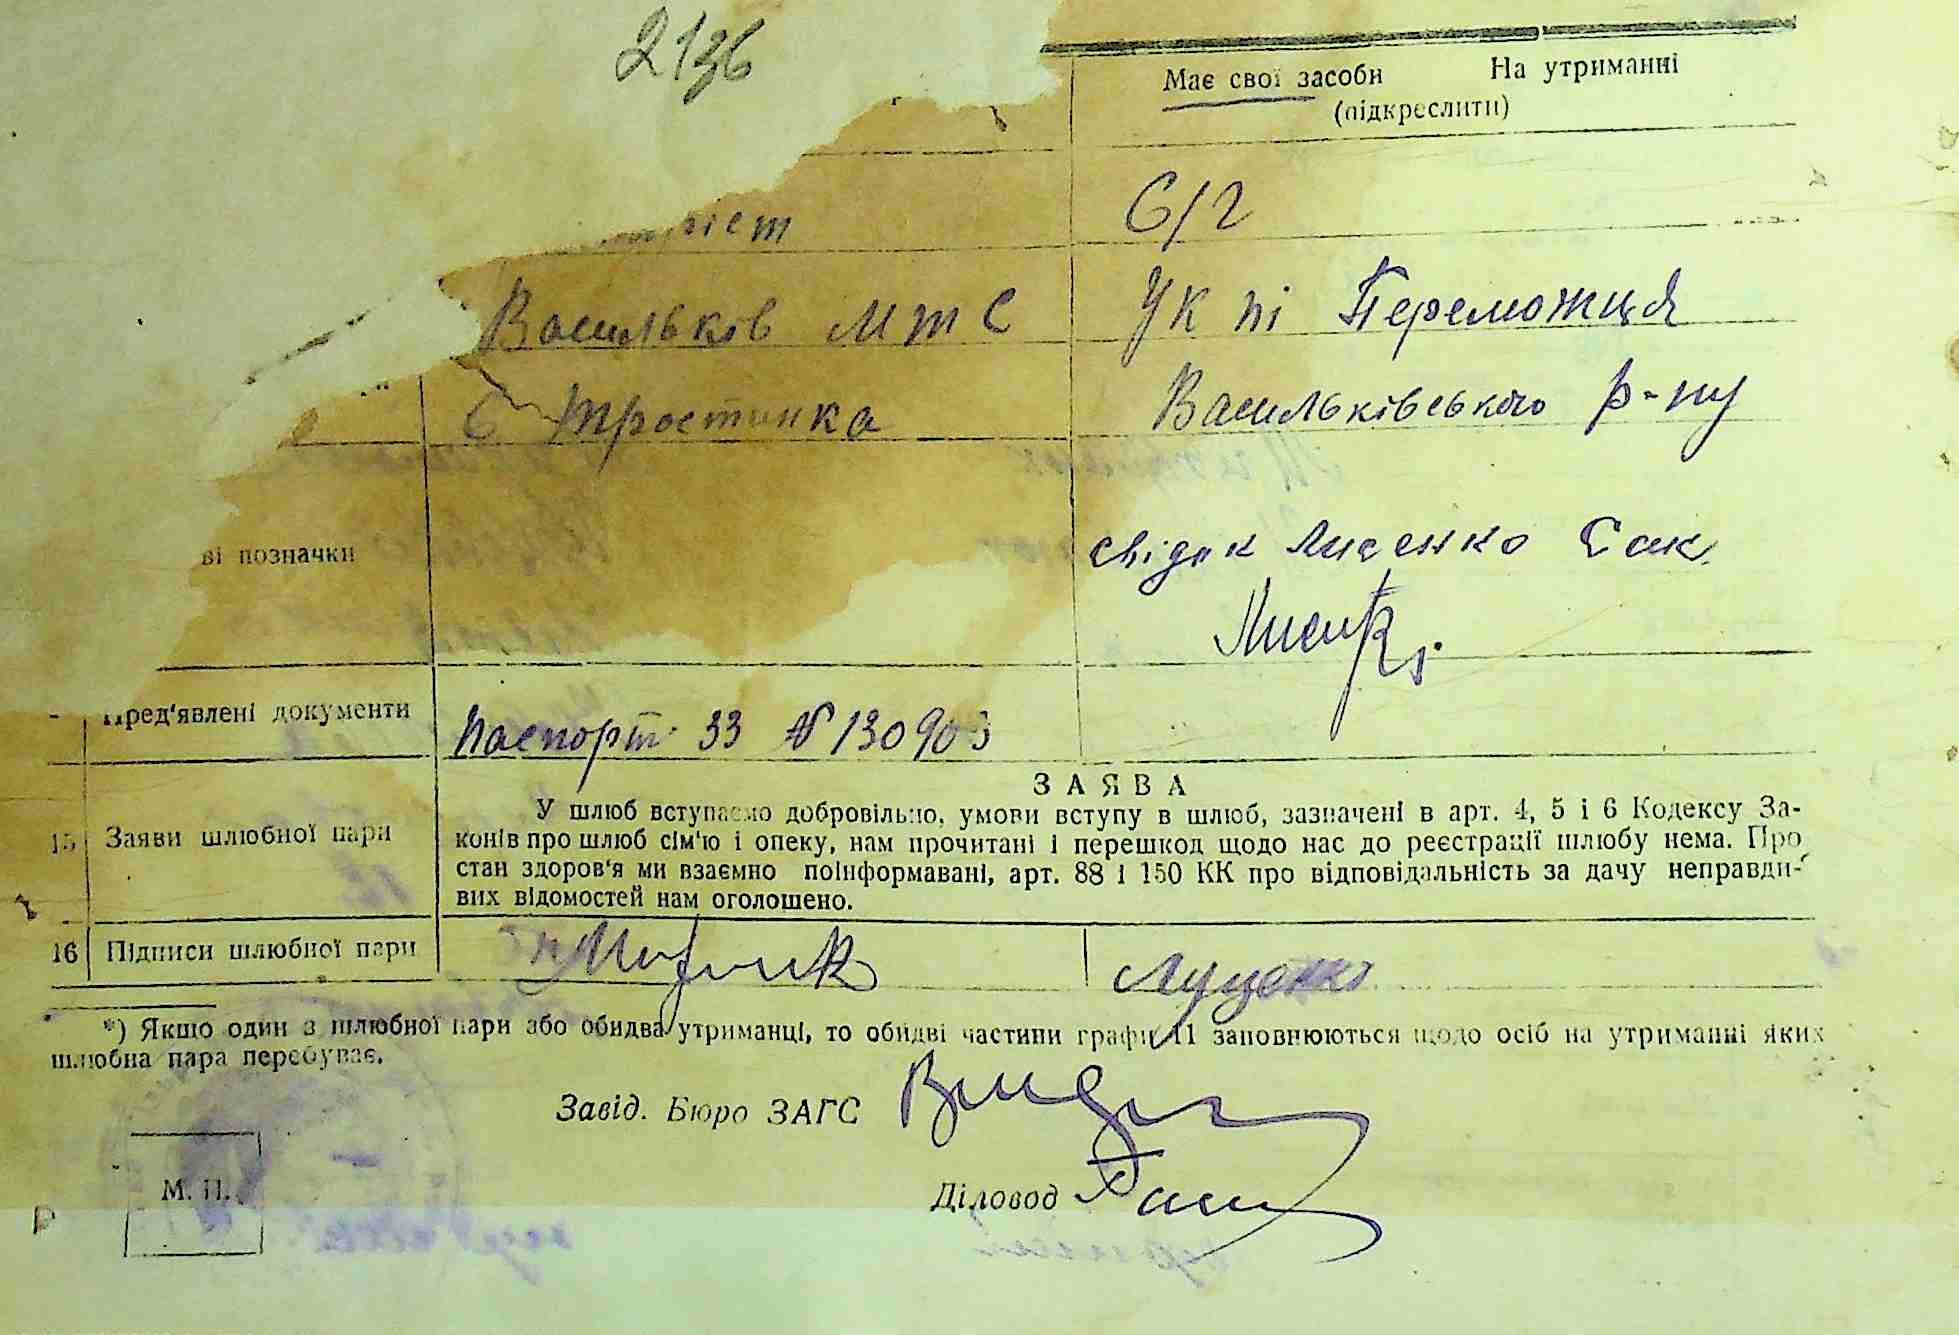 2136
Має свої засоби На утриманні
(підкреслити)
С/Г
Васильків МТС УК ПІ Переможця
С Тростинка Васильківського р-ну
ві позначки свідок Лисенко Сак.
Пред'явлені документи Паспорт 33 № 130903
ЗАЯВА
У шлюб вступаємо добровільно, умови вступу в шлюб, зазначені в арт. 4, 5 і 6 Кодексу За-
15 Заяви шлюбної пари конів про шлюб сім'ю і опеку, нам прочитані і перешкод щодо нас до реєстрації шлюбу нема. Про
стан здоров'я ми взаємно поінформавані, арт. 88 і 150 КК про відповідальність за дачу неправди-
вих відомостей нам оголошено.
16 Підписи шлюбної пари Луценко
*) Якшо один з шлюбної пари або обидва утриманці, то обидві частини графи 11 заповнюються щодо осіб на утриманні яких
шлюбна пара перебуває.
Завід. Бюро ЗАГС
М. П. Діловод